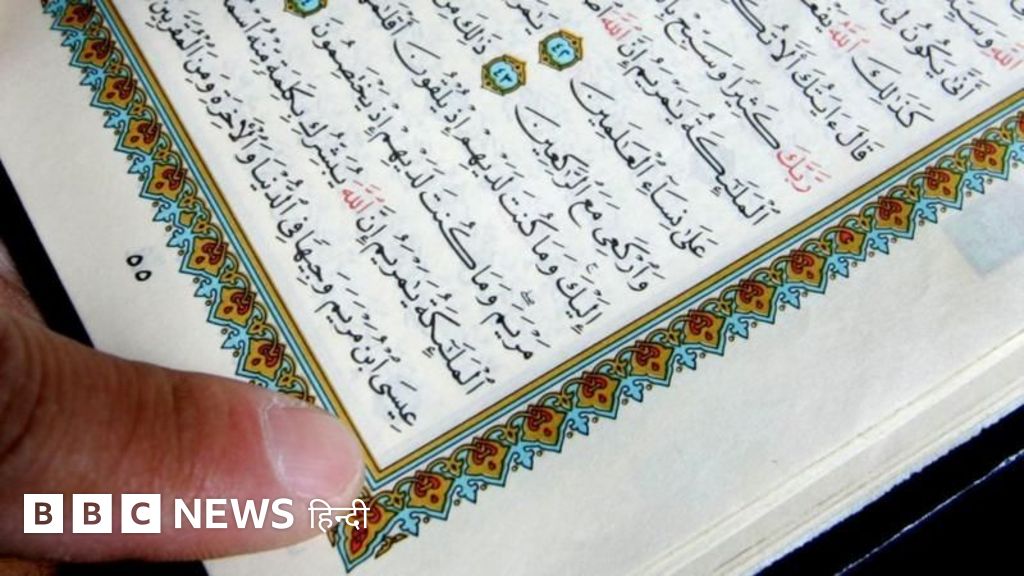 ٱللَّهِ
أَنَّىٰ يَكُونُ لِى
كَذَٰلِكَ ٱللَّهُ
قَالَ ءَايَتُكَ أَلَّا
رَّبَّكَ كَثِيرًا وَسَبِّحْ
ٱلْمَلَـٰٓئِكَةُ يَـٰمَرْيَمُ إِنَّ ٱللَّهَ
عَلَىٰ نِسَآءِ ٱلْعَـٰلَمِينَ ٤٢
وَٱرْكَعِى مَعَ ٱلرَّٰكِعِينَ ٤٣ ذَٰلِكَ
إِلَيْكَ وَمَا كُنتَ لَدَيْهِمْ إِذْ يُلْقُونَ
مَرْيَمَ وَمَا كُنتَ لَدَيْهِمْ إِذْ يَخْتَصِمُونَ
ٱلْمَلَـٰٓئِكَةُ يَـٰمَرْيَمُ إِنَّ ٱللَّهَ يُبَشِّرُكِ بِكَلِمَةٍ مِّنْهُ
عِيسَى ٱبْنُ مَرْيَمَ وَجِيهًا فِى ٱلدُّنْيَا وَٱلْءَاخِرَةِ وَمِنَ ٱلْمُقَرَّبِينَ
٥٥
BBC NEWS हिन्दी